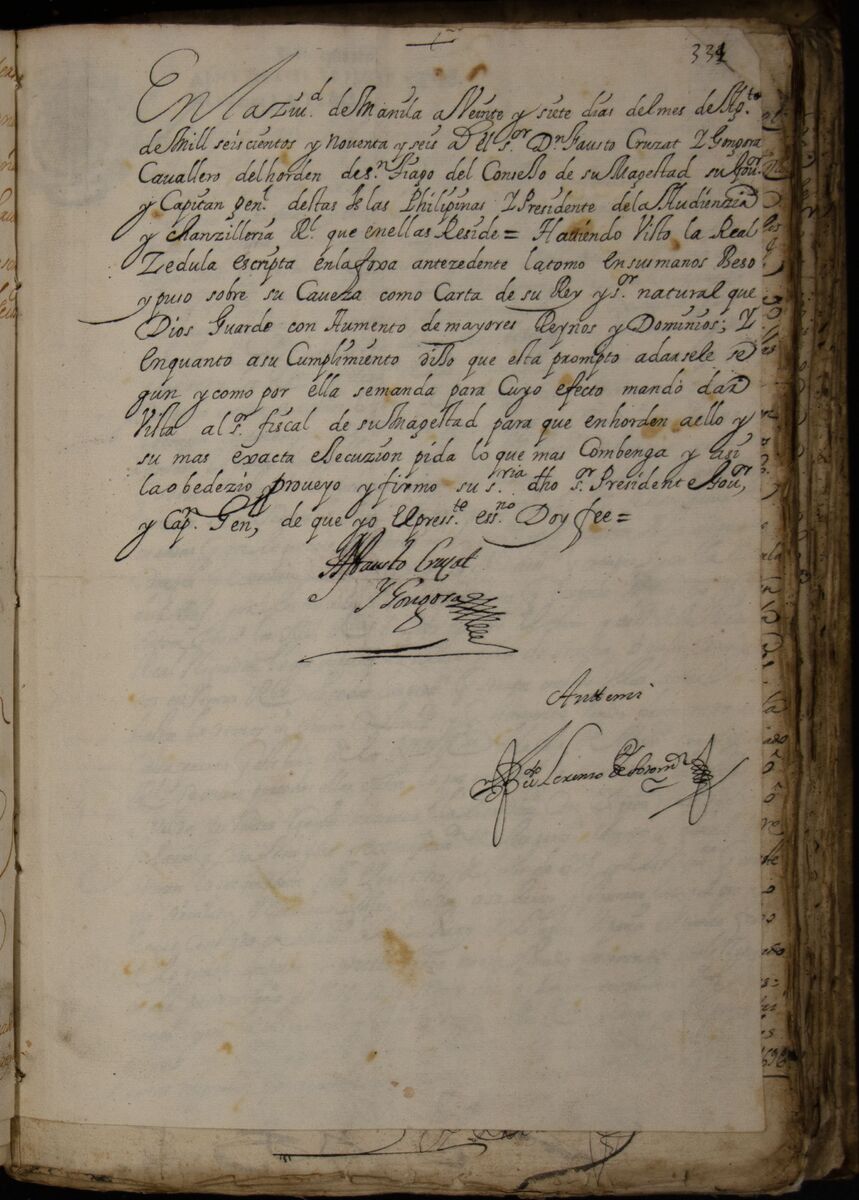 334
En la Ziud. de Manila a Veinte y siete dias del mes de Agto.
de Mill seiscientos y noventa y seis a. El sor. Dn. Fausto Cruzat Y Gongora
Cavallero del horden de sn. tiago del Consejo de su Magestad su Gour.
y Capitan Genl. destas Ys.las Philipinas Y Presidente de la Audienzia
y chanzilleria Rl. que en ellas Reside = Haviendo Visto la Real
Zedula escripta en la foxa antezedente la tomo en sus manos Beso
y puso sobre su Caveza como Carta de su Rey y sor. natural que
Dios Guarde con Aumento de mayores Reynos y Dominios; Y
en quanto a su Cumplimiento dijo que esta prompto a darsele se
gun y como por ella se manda para Cuyo efecto mandó dar
Vista al sr. fiscal de su Magestad para que en horden a ello y
su mas exacta ejecuzion pida lo que mas Combenga y asi
la obedezio proveyo y firmo su s.ria dho sor. Presidente Gour.
y Capn. Gen, de que yo El press.te ess.no Doy fee =
Fausto Cruzat
Y Gongora
Anttemi